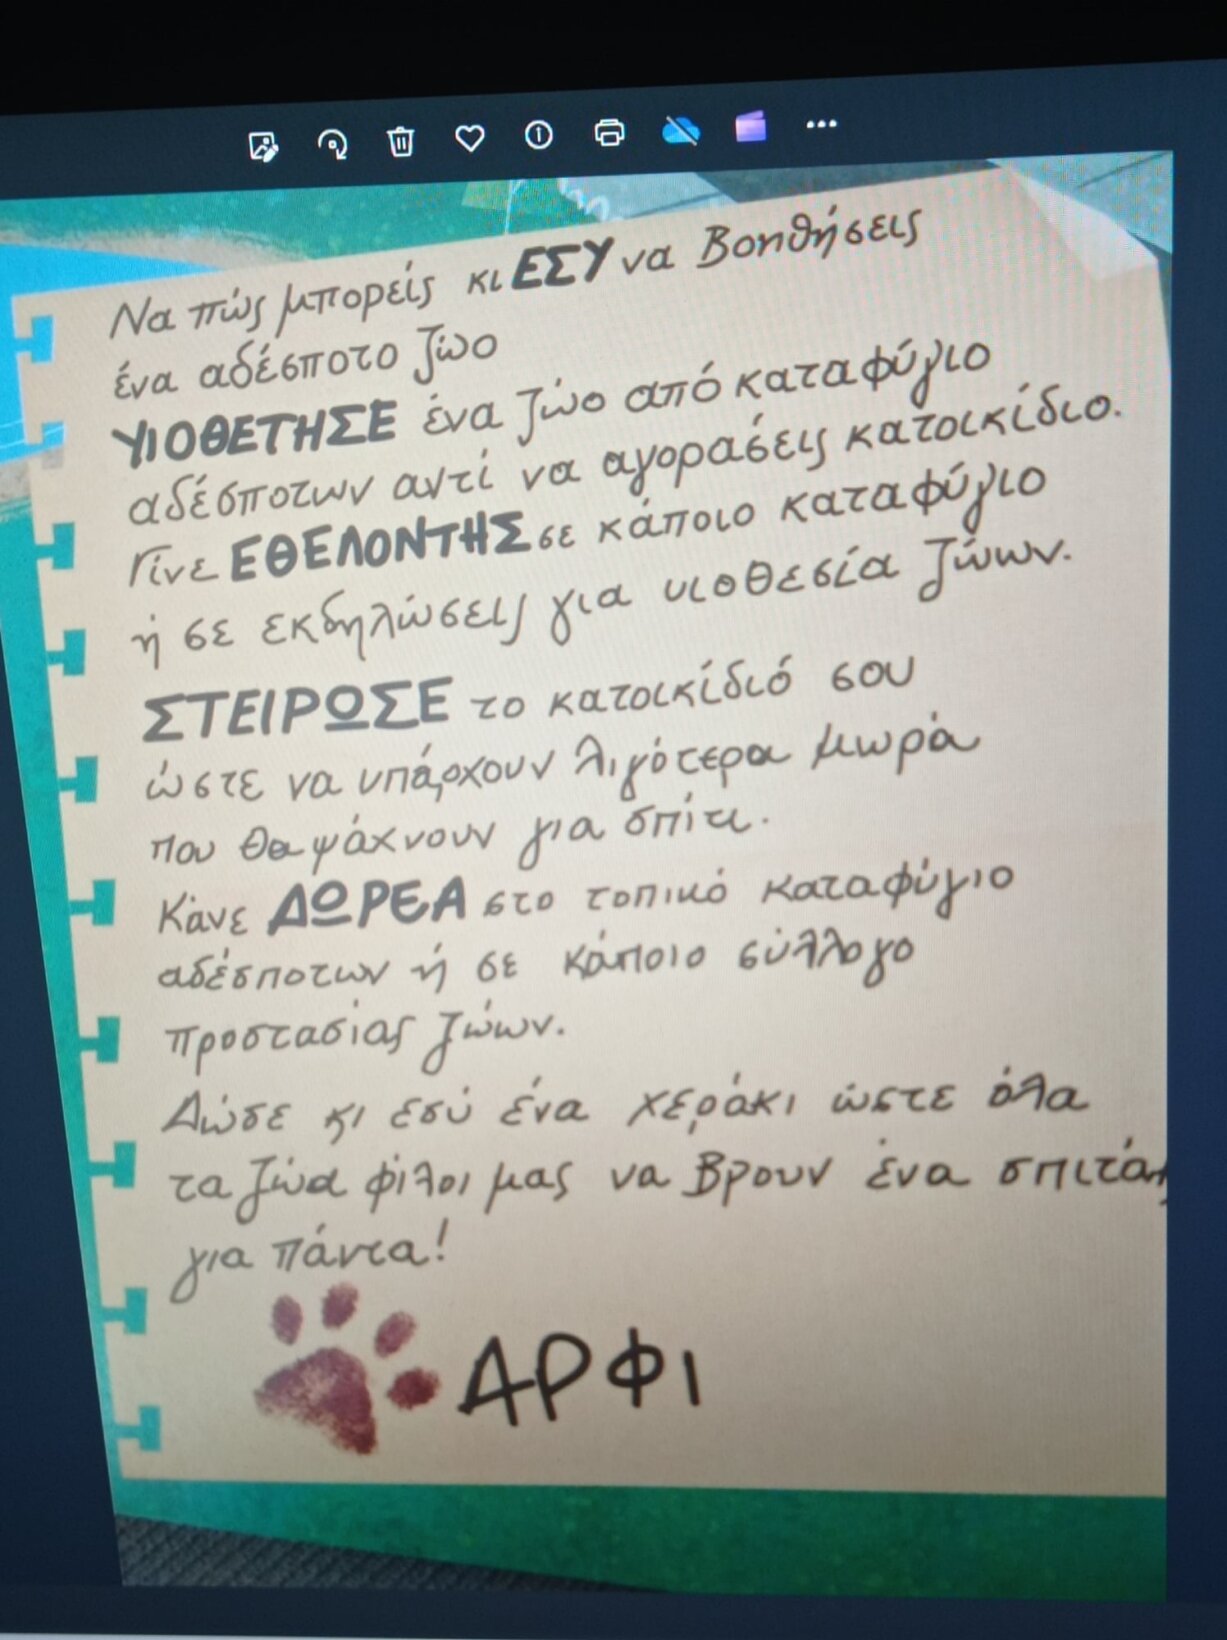 Να πώς μπορείς κι ΕΣΥ να Βοηθήσεις
ένα αδέσποτο ζώο
ΥΙΟΘΕΤΗΣΕ ένα ζώο από καταφύγιο
αδέσποτων αντί να αγοράσεις κατοικίδιο.
Γίνε ΕΘΕΛΟΝΤΗΣ σε κάποιο καταφύγιο
ή σε εκδηλώσεις για υιοθεσία ζώων.
ΣΤΕΙΡΩΣΕ το κατοικίδιό σου
ώστε να υπάρχουν λιγότερα μωρά
που θα ψάχνουν για σπίτι.
Κάνε ΔΩΡΕΑ στο τοπικό καταφύγιο
αδέσποτων ή σε κάποιο σύλλογο
προστασίας ζώων.
Δώσε κι εσύ ένα χεράκι ώστε όλα
τα ζώα φίλοι μας να Βρουν ένα
για πάντα!
ΑΡΦΙ